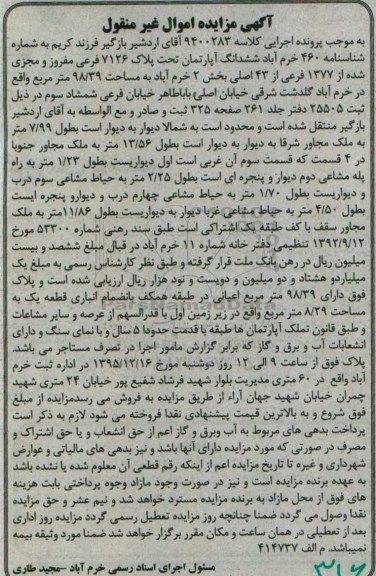 آگهی مزایده اموال غیر منقول
به موجب پرونده اجرایی کلاسه ۹۴۰۰۲۸۳ آقای اردشیر بازگیر فرزند کریم به شماره
شناسنامه ۴۶۰ خرم آباد ششدانگ آپارتمان تحت پلاک ۷۱۲۶ فرعی مفروز و مجزی
شده از ۱۳۷۷ فرعی از ۴۳ اصلی بخش ۲ خرم آباد به مساحت ۹۸/۳۹ متر مربع واقع
در خرم آباد گلدشت شرقی خیابان اصلی باباطاهر خیابان فرعی شمشاد سوم در ذیل
ثبت ۲۵۵۰۵ دفتر جلد ۲۶۱ صفحه ۳۲۵ ثبت و صادر و مع الواسطه به آقای اردشیر
بازگیر منتقل شده است و محدود است به شمالا دیوار به دیوار است بطول ۷/۹۹ متر
به ملک مجاور شرقا به دیوار به دیوار است بطول ۱۳/۵۶ متر به ملک مجاور جنوبا
در ۴ قسمت که قسمت سوم آن غربی است اول دیواریست بطول ۱/۲۳ متر به راه
پله مشاعی دوم دیوار و پنجره ای است بطول ۲/۲۵ متر به حیاط مشاعی سوم درب
و دیواریست بطول ۱/۷۰ متر به حیاط مشاعی چهارم درب و دیوارو پنجره ایست
بطول ۴/۵۰ متر به حیاط مشاعی غربا دیوار به دیواریست بطول ۱۱/۸۶متر به ملک
مجاور سقف با کف طبقه یک اشتراکی است طبق سند رهنی شماره ۵۳۳۰۰ مورخ
۱۳۹۲/۹/۱۲ تنظیمی دفتر خانه شماره ۱۱ خرم آباد در قبال مبلغ ششصد و بیست
میلیون ریال در رهن بانک ملت قرار گرفته و طبق نظر کارشناس رسمی به مبلغ یک
میلیاردو هشتاد و دو میلیون و دویست و نود هزار ریال ارزیابی شده است و پلاک
فوق دارای ۹۸/۳۹ متر مربع اعیانی در طبقه همکف بانضمام انباری قطعه یک به
مساحت ۸/۲۹ متر مربع واقع در زیر زمین اول با قدرالسهم از عرصه و سایر مشاعات
و طبق قانون تملک آپارتمان ها طبقه با قدمت حدودا ۵ سال و با نمای سنگ و دارای
انشعابات آب و برق و گاز که برابر گزارش مامور اجرا در تصرف مستاجر می باشد.
پلاک فوق از ساعت ۹ الی ۱۲ روز دوشنبه مورخ ۱۳۹۵/۱۲/۱۶ در اداره ثبت خرم
آباد واقع در ۶۰ متری مدیریت بلوار شهید فرشاد شفیع پور خیابان ۲۴ متری شهید
چمران خیابان شهید جهان آراء از طریق مزایده به فروش می رسدمزایده از مبلغ
فوق شروع و به بالاترین قیمت پیشنهادی نقدا فروخته می شود لازم به ذکر است
پرداخت بدهی های مربوط به آب وبرق و گاز اعم از حق انشعاب و یا حق اشتراک و
مصرف در صورتی که مورد مزایده دارای آنها باشد و نیز بدهی های مالیاتی و عوارض
شهرداری و غیره تا تاریخ مزایده اعم از اینکه رقم قطعی آن معلوم شده یا نشده باشد
به عهده برنده مزایده است و نیز در صورت وجود مازاد وجوه پرداختی بابت هزینه
های فوق از محل مازاد به برنده مزایده مسترد خواهد شد و نیم عشر و حق مزایده
نقدا وصول می گردد ضمنا چنانچه روز مزایده تعطیل رسمی گردد مزایده روز اداری
بعد از تعطیلی در همان ساعت و مکان مقرر برگزار خواهد شد ضمنا مورد وثیقه بیمه
نمیباشد. م الف ۴۱۴۷۳۷
مسئول اجرای اسناد رسمی خرم آباد -مجید طاری
۳۱۶